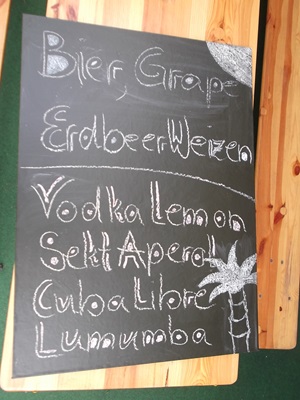 Bier, Grape
Erdbeer Weizen
Vodka Lemon
Sekt Aperol
Cuba Libre
Lumumba